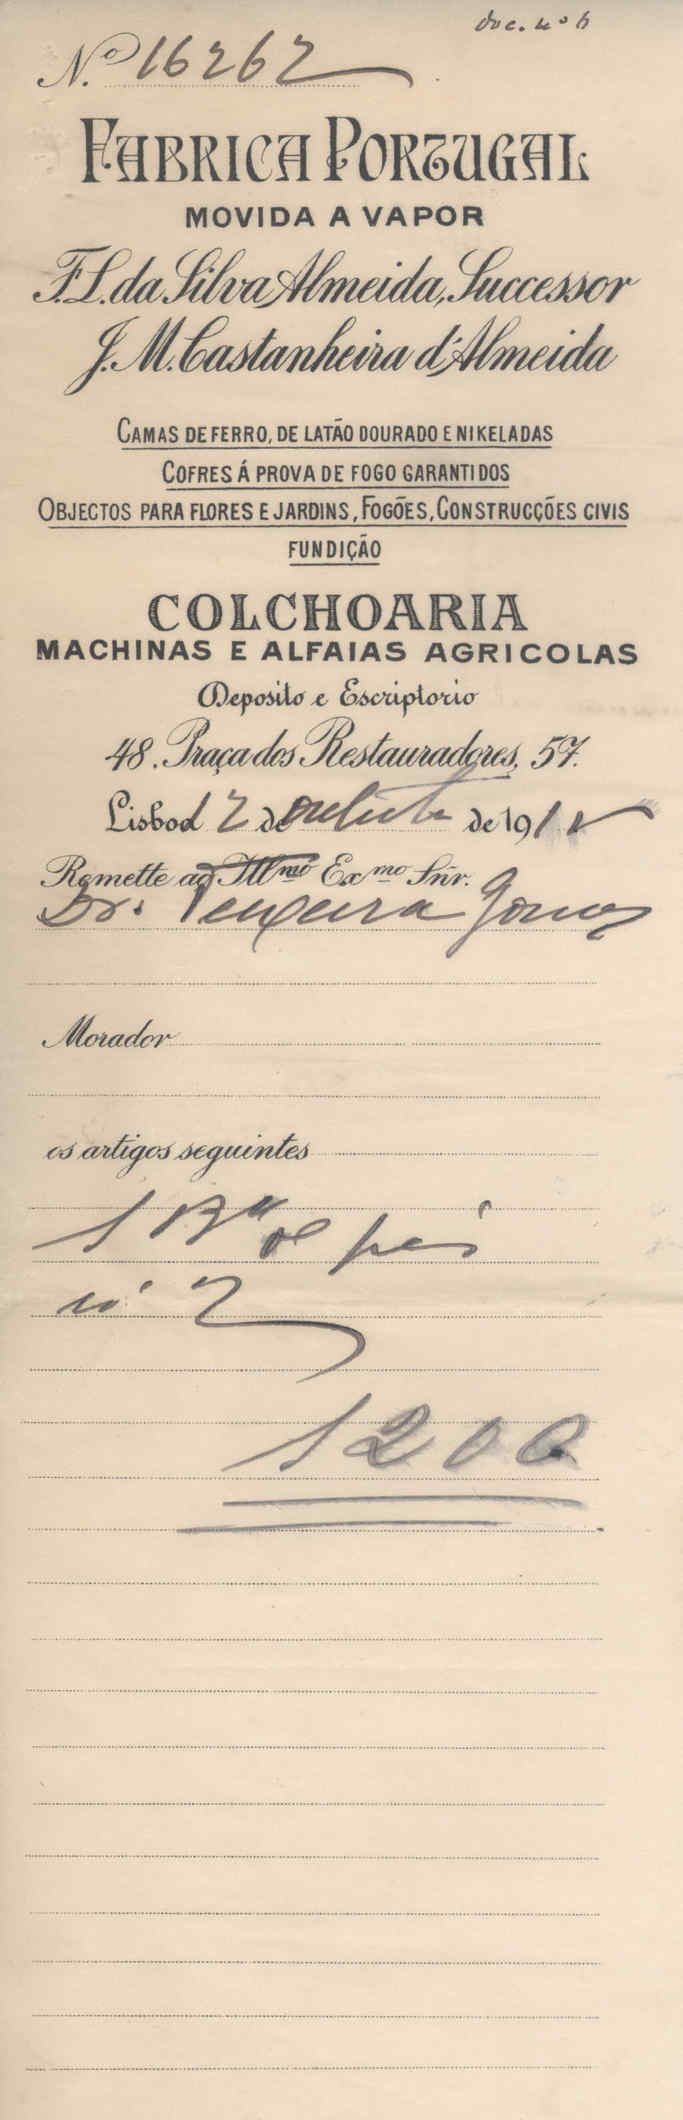 doc. nº 6
N.º 16262
FABRICA PORTUGAL
MOVIDA A VAPOR
F. L. da Silva Almeida, Successor
J. M. Castanheira d'Almeida
CAMAS DE FERRO, DE LATÃO DOURADO E NIKELADAS
COFRES Á PROVA DE FOGO GARANTIDOS
OBJECTOS PARA FLORES E JARDINS, FOGÕES, CONSTRUCÇÕES CIVIS
FUNDIÇÃO
COLCHOARIA
MACHINAS E ALFAIAS AGRICOLAS
Deposito e Escriptorio
48. Praça dos Restauradores, 57.
Lisboa 2 de outubro de 191
Remette ao Illmo Exmo Snr.
Dr. Teixeira Gomes
Morador
os artigos seguintes
1 Bª de pés
nº 2
1200